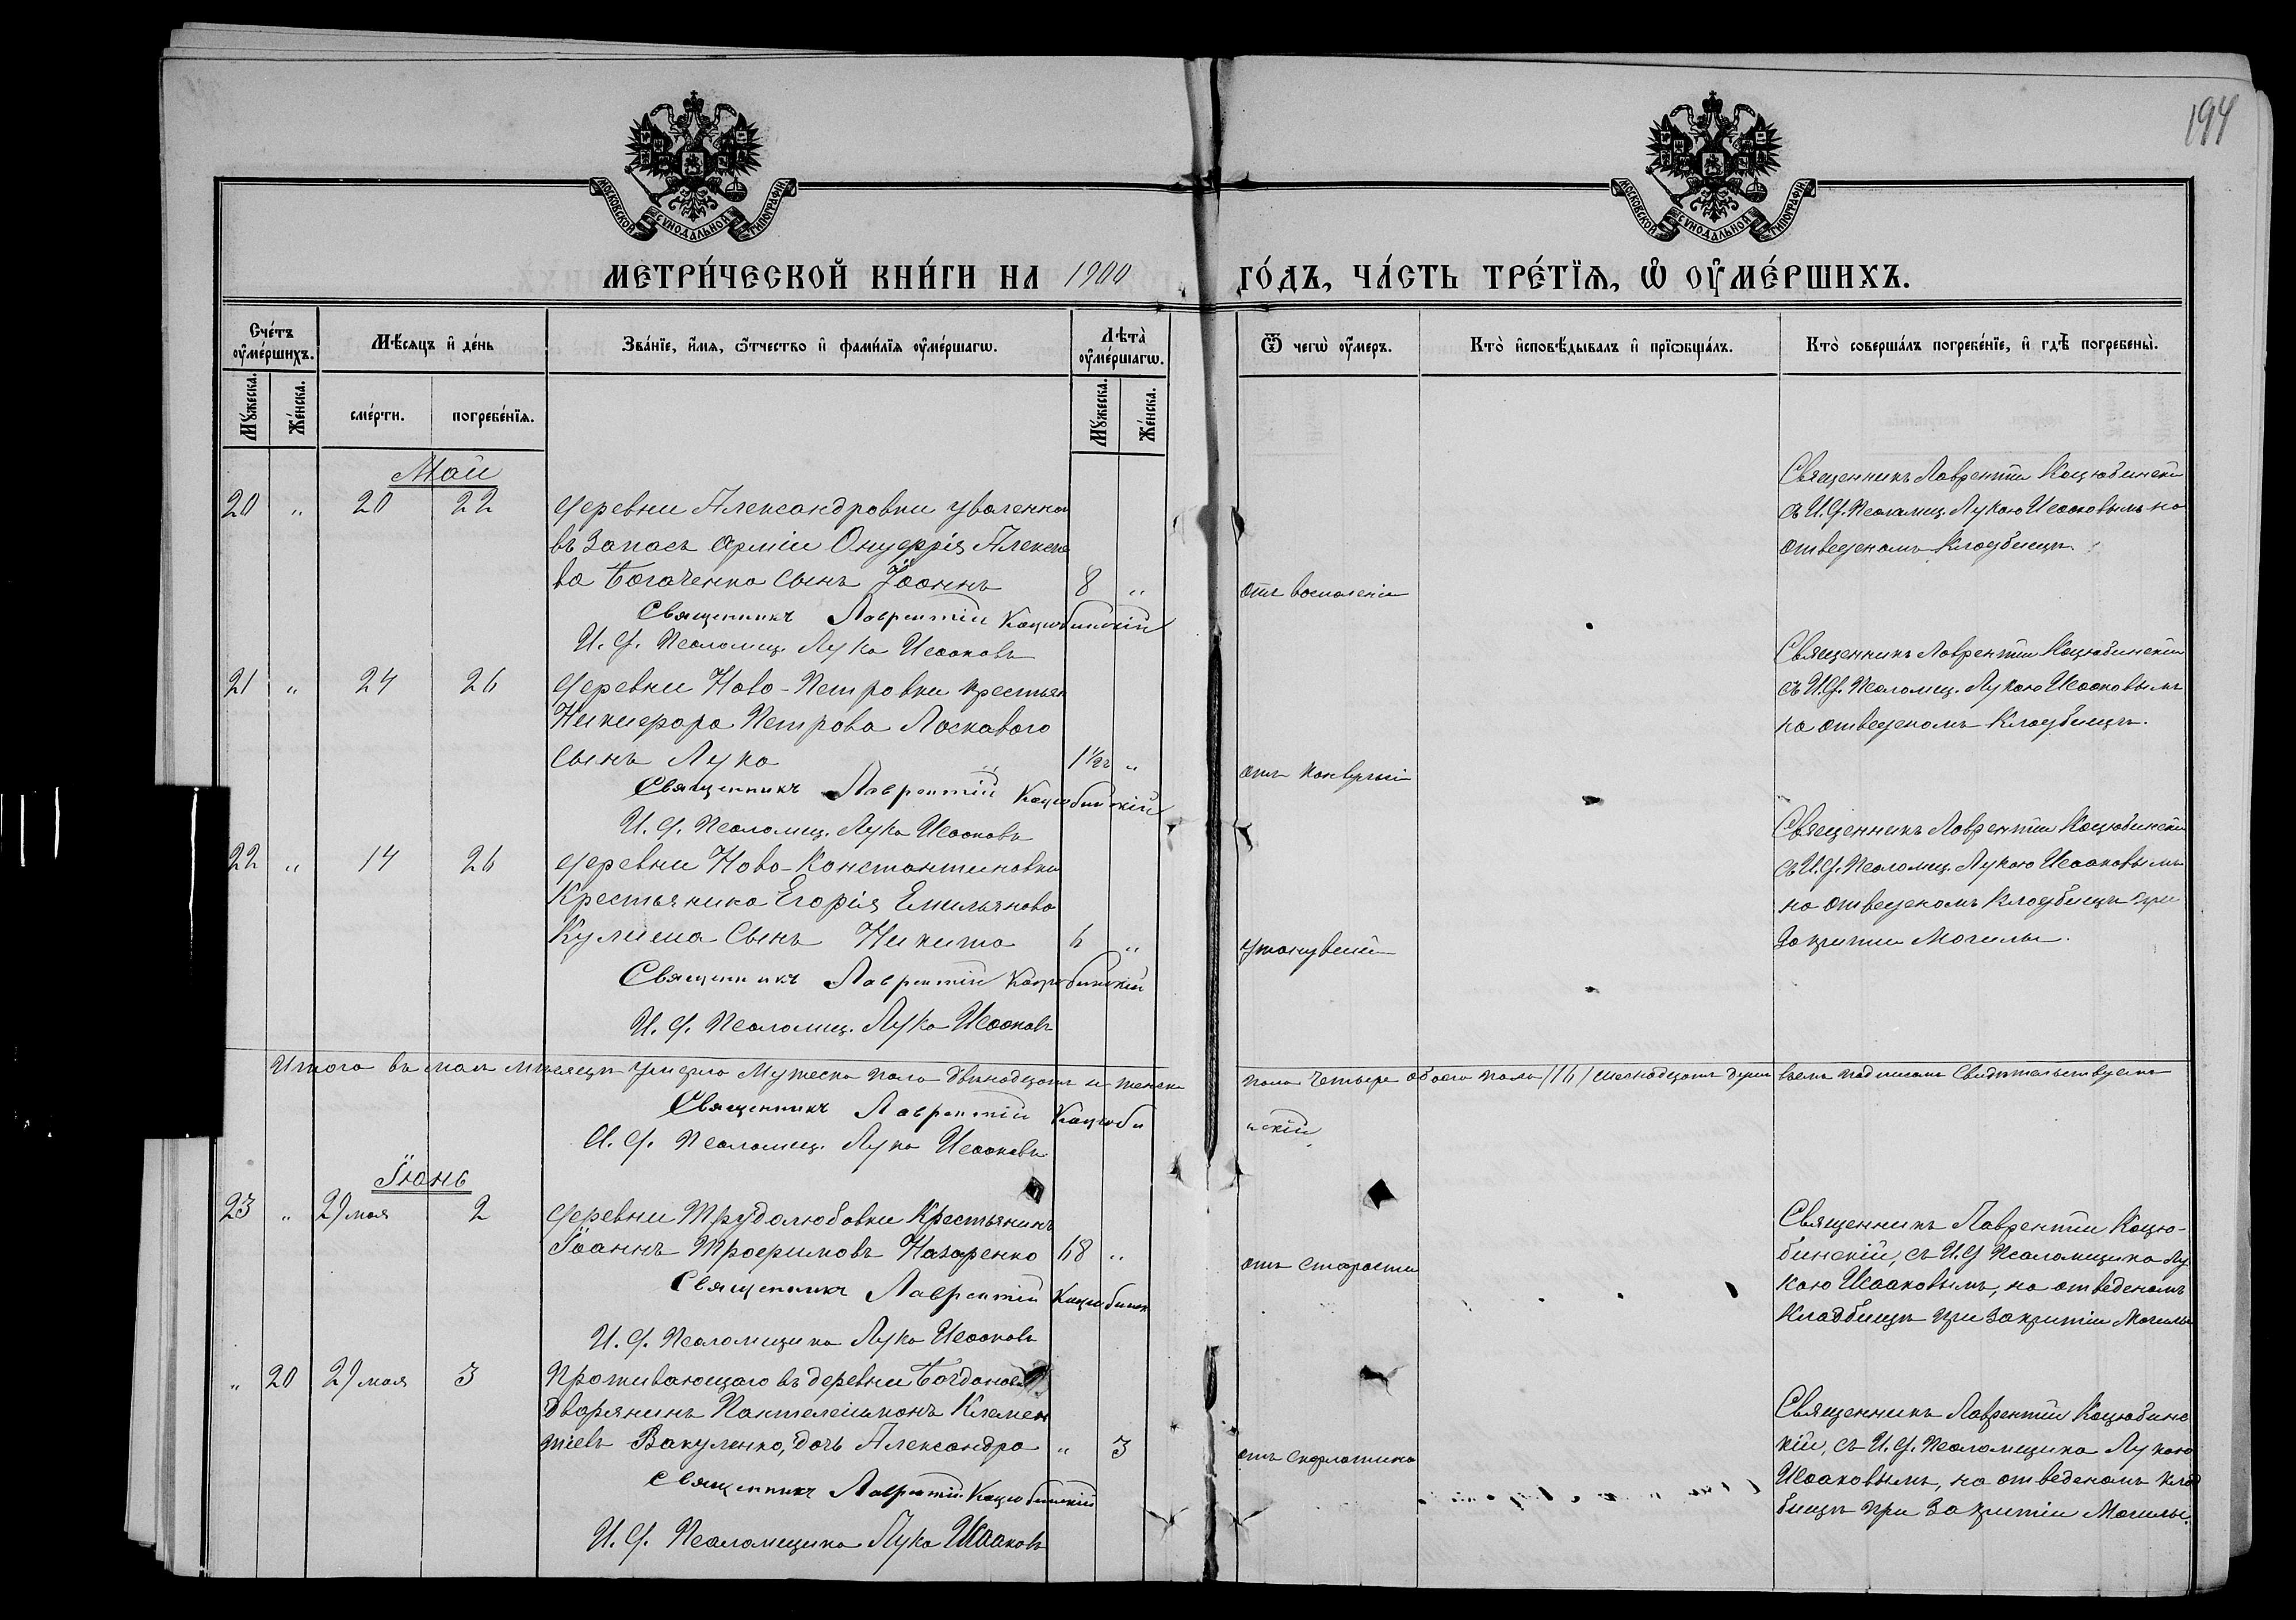 194
МОСКОВСКОЙ СѴНОДАЛЬНОЙ ТИПОГРАФІИ
МОСКОВСКОЙ СѴНОДАЛЬНОЙ ТИПОГРАФІИ
МЕТРИ́ЧЕСКОЙ КНИ́ГИ НА 1900 ГО́ДЪ, ЧА́СТЬ ТРЕ́ТЇѦ, Ѡ҆ ОУ҆МЕ́РШИХЪ.
Сче́тъ оу҆ме́ршихъ.
Мꙋ́жеска.
Же́нска.
Мѣ́сяцъ и҆ де́нь
сме́рти.
погребе́нїѧ.
Зва́нїе, и҆́мѧ, ѻ҆́тчество и҆ фами́лїѧ оу҆ме́ршагѡ.
Лѣта̀ оу҆ме́ршагѡ.
Мꙋ́жеска.
Же́нска.
Ѿ чегѡ̀ оу҆́меръ.
Кто̀ и҆сповѣ́дывалъ и҆ прїѡбща́лъ.
Кто̀ соверша́лъ погребе́нїе, и҆ гдѣ̀ погребены̀.
Май
20 " 20 22
деревни Александровки уволенна
въ Запасъ Арміи Онуфрія Алексѣ
ва Богаченка Сынъ Іоаннъ 8 "
отъ воспаленія
Священникъ Лаврентій Коцюбинскій
И. д. Псаломщ. Лука Исааковъ
Священникъ Лаврентій Коцюбинскій
съ И. д. Псаломщ. Лукою Исааковымъ на
отведеномъ Кладбищѣ.
21 " 24 26
деревни Ново-Петровки крестьян
Никифора Петрова Ласкавого
Сынъ Лука 1½ г "
отъ конвульсій
Священникъ Лаврентій Коцюбинскій
И. д. Псаломщ. Лука Исааковъ
Священникъ Лаврентій Коцюбинскій
съ И. д. Псаломщ. Лукою Исааковымъ
на отведеномъ Кладбищѣ.
22 " 14 26
деревни Ново-Константиновки
Крестьянина Егорія Емильянова
Кулиша Сынъ Никита 6 "
утонувшій
Священникъ Лаврентій Коцюбинскій
И. д. Псаломщ. Лука Исааковъ
Священникъ Лаврентій Коцюбинскій
съ И. д. Псаломщ. Лукою Исааковымъ
на отведеномъ Кладбищѣ при
закрытіи Могилы.
Итого въ маѣ мѣсяцѣ умерло Мужеска пола двѣнадцать и женска пола Четыре обоего пола /16/ шестнадцать душъ въ чемъ подписомъ Свидѣтельствуемъ
Священникъ Лаврентій Коцюбинскій
И. д. Псаломщ. Лука Исааковъ
Іюнь
23 " 29 мая 2
деревни Трудолюбовки Крестьянинъ
Іоаннъ Трофимовъ Назаренко 68 "
отъ старости
Священникъ Лаврентій Коцюбинск
И. д. Псаломщика Лука Исааковъ
Священникъ Лаврентій Коцю-
бинскій, съ И. д. Псаломщика Лу
кою Исааковымъ, на отведеномъ
Кладбищѣ при закрытіи Могилы
" 20 29 мая 3
Проживающаго въ деревни Богдановк
дворянинъ Пантелеимонъ Клемен
тіевъ Вакуленко, дочь Александра " 3
отъ скарлатина
Священникъ Лаврентій Коцюбинскій
И. д. Псаломщика Лука Исааковъ
Священникъ Лаврентій Коцюбинс
кій, съ И. д. Псаломщика Лукою
Исааковымъ, на отведеномъ клад
бищѣ при закрытіи Могилы.